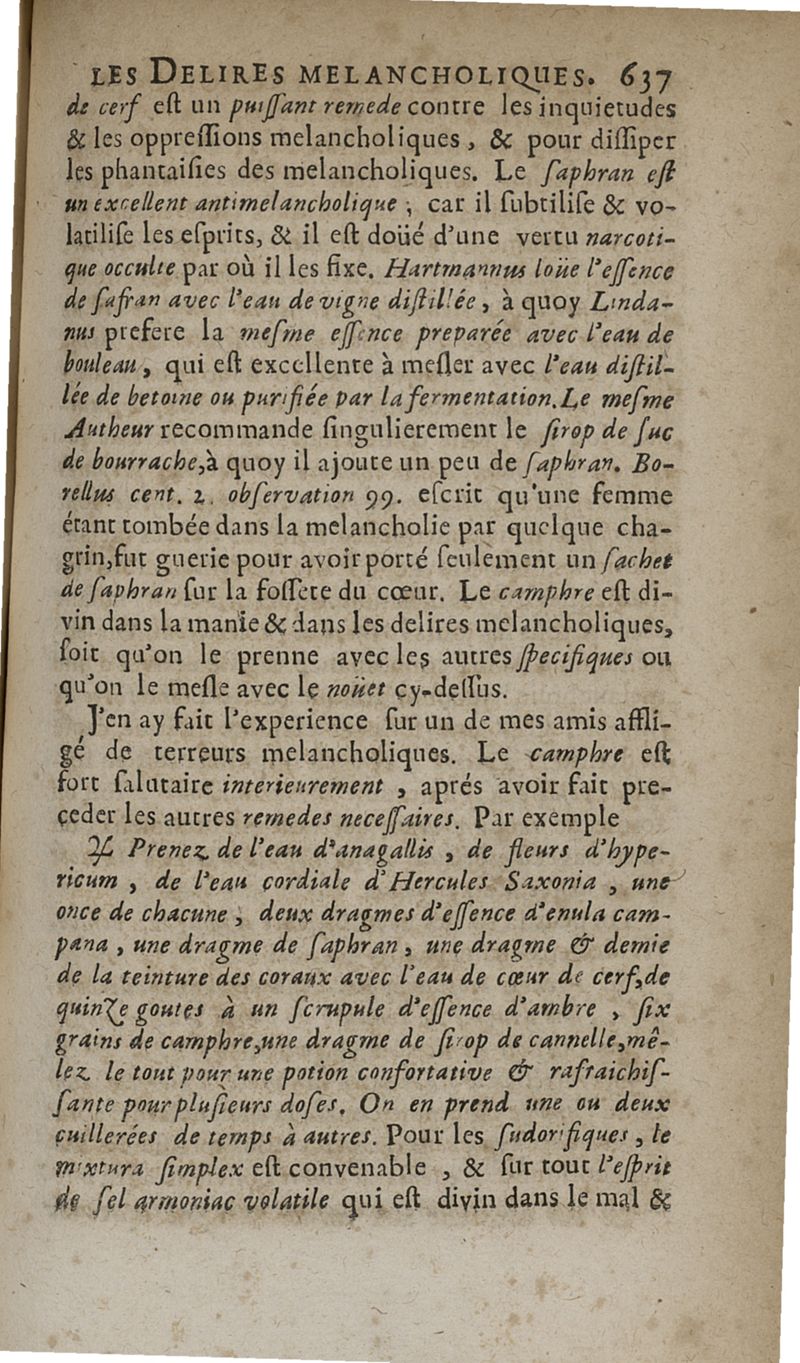 LES DELIRES MELANCHOLIQUES. 637
de cerf eſt un puiſſant remede contre les inquietudes
& les oppreſſions melancholiques, & pour diſſiper
les phantaiſies des melancholiques. Le ſaphran eſt
un excellent antimelancholique ; car il ſubtiliſe & vo-
latiliſe les eſprits, & il eſt doüé d'une vertu narcoti-
que occulte par où il les fixe. Hartmannus loüe l'eſſence
de ſafran avec l'eau de vigne diſtillée, à quoy Linda-
nus prefere la meſme eſſence preparée avec l'eau de
bouleau, qui eſt excellente à meſler avec l'eau diſtil-
lée de betoine ou purifiée par la fermentation. Le meſme
Autheur recommande ſingulierement le ſirop de ſuc
de bourrache, à quoy il ajoute un peu de ſaphran. Bo-
rellus cent. 2. obſervation 99. eſcrit qu'une femme
étant tombée dans la melancholie par quelque cha-
grin, fut guerie pour avoir porté ſeulement un ſachet
de ſaphran ſur la foſſete du cœur. Le camphre eſt di-
vin dans la manie & dans les delires melancholiques,
ſoit qu'on le prenne avec les autres ſpecifiques ou
qu'on le meſle avec le noüet cy-deſſus.
J'en ay fait l'experience ſur un de mes amis affli-
gé de terreurs melancholiques. Le camphre eſt
fort ſalutaire interieurement, aprés avoir fait pre-
ceder les autres remedes neceſſaires. Par exemple
♃ Prenez de l'eau d'anagallis, de fleurs d'hype-
ricum, de l'eau cordiale d'Hercules Saxonia, une
once de chacune ; deux dragmes d'eſſence d'enula cam-
pana, une dragme de ſaphran, une dragme & demie
de la teinture des coraux avec l'eau de cœur de cerf, de
quinze goutes à un ſcrupule d'eſſence d'ambre, ſix
grains de camphre, une dragme de ſirop de cannelle, mê-
lez le tout pour une potion confortative & rafraichiſ-
ſante pour pluſieurs doſes. On en prend une ou deux
cuillerées de temps à autres. Pour les ſudorifiques, le
mixtura ſimplex eſt convenable, & ſur tout l'eſprit
de ſel armoniac volatile qui eſt divin dans le mal &